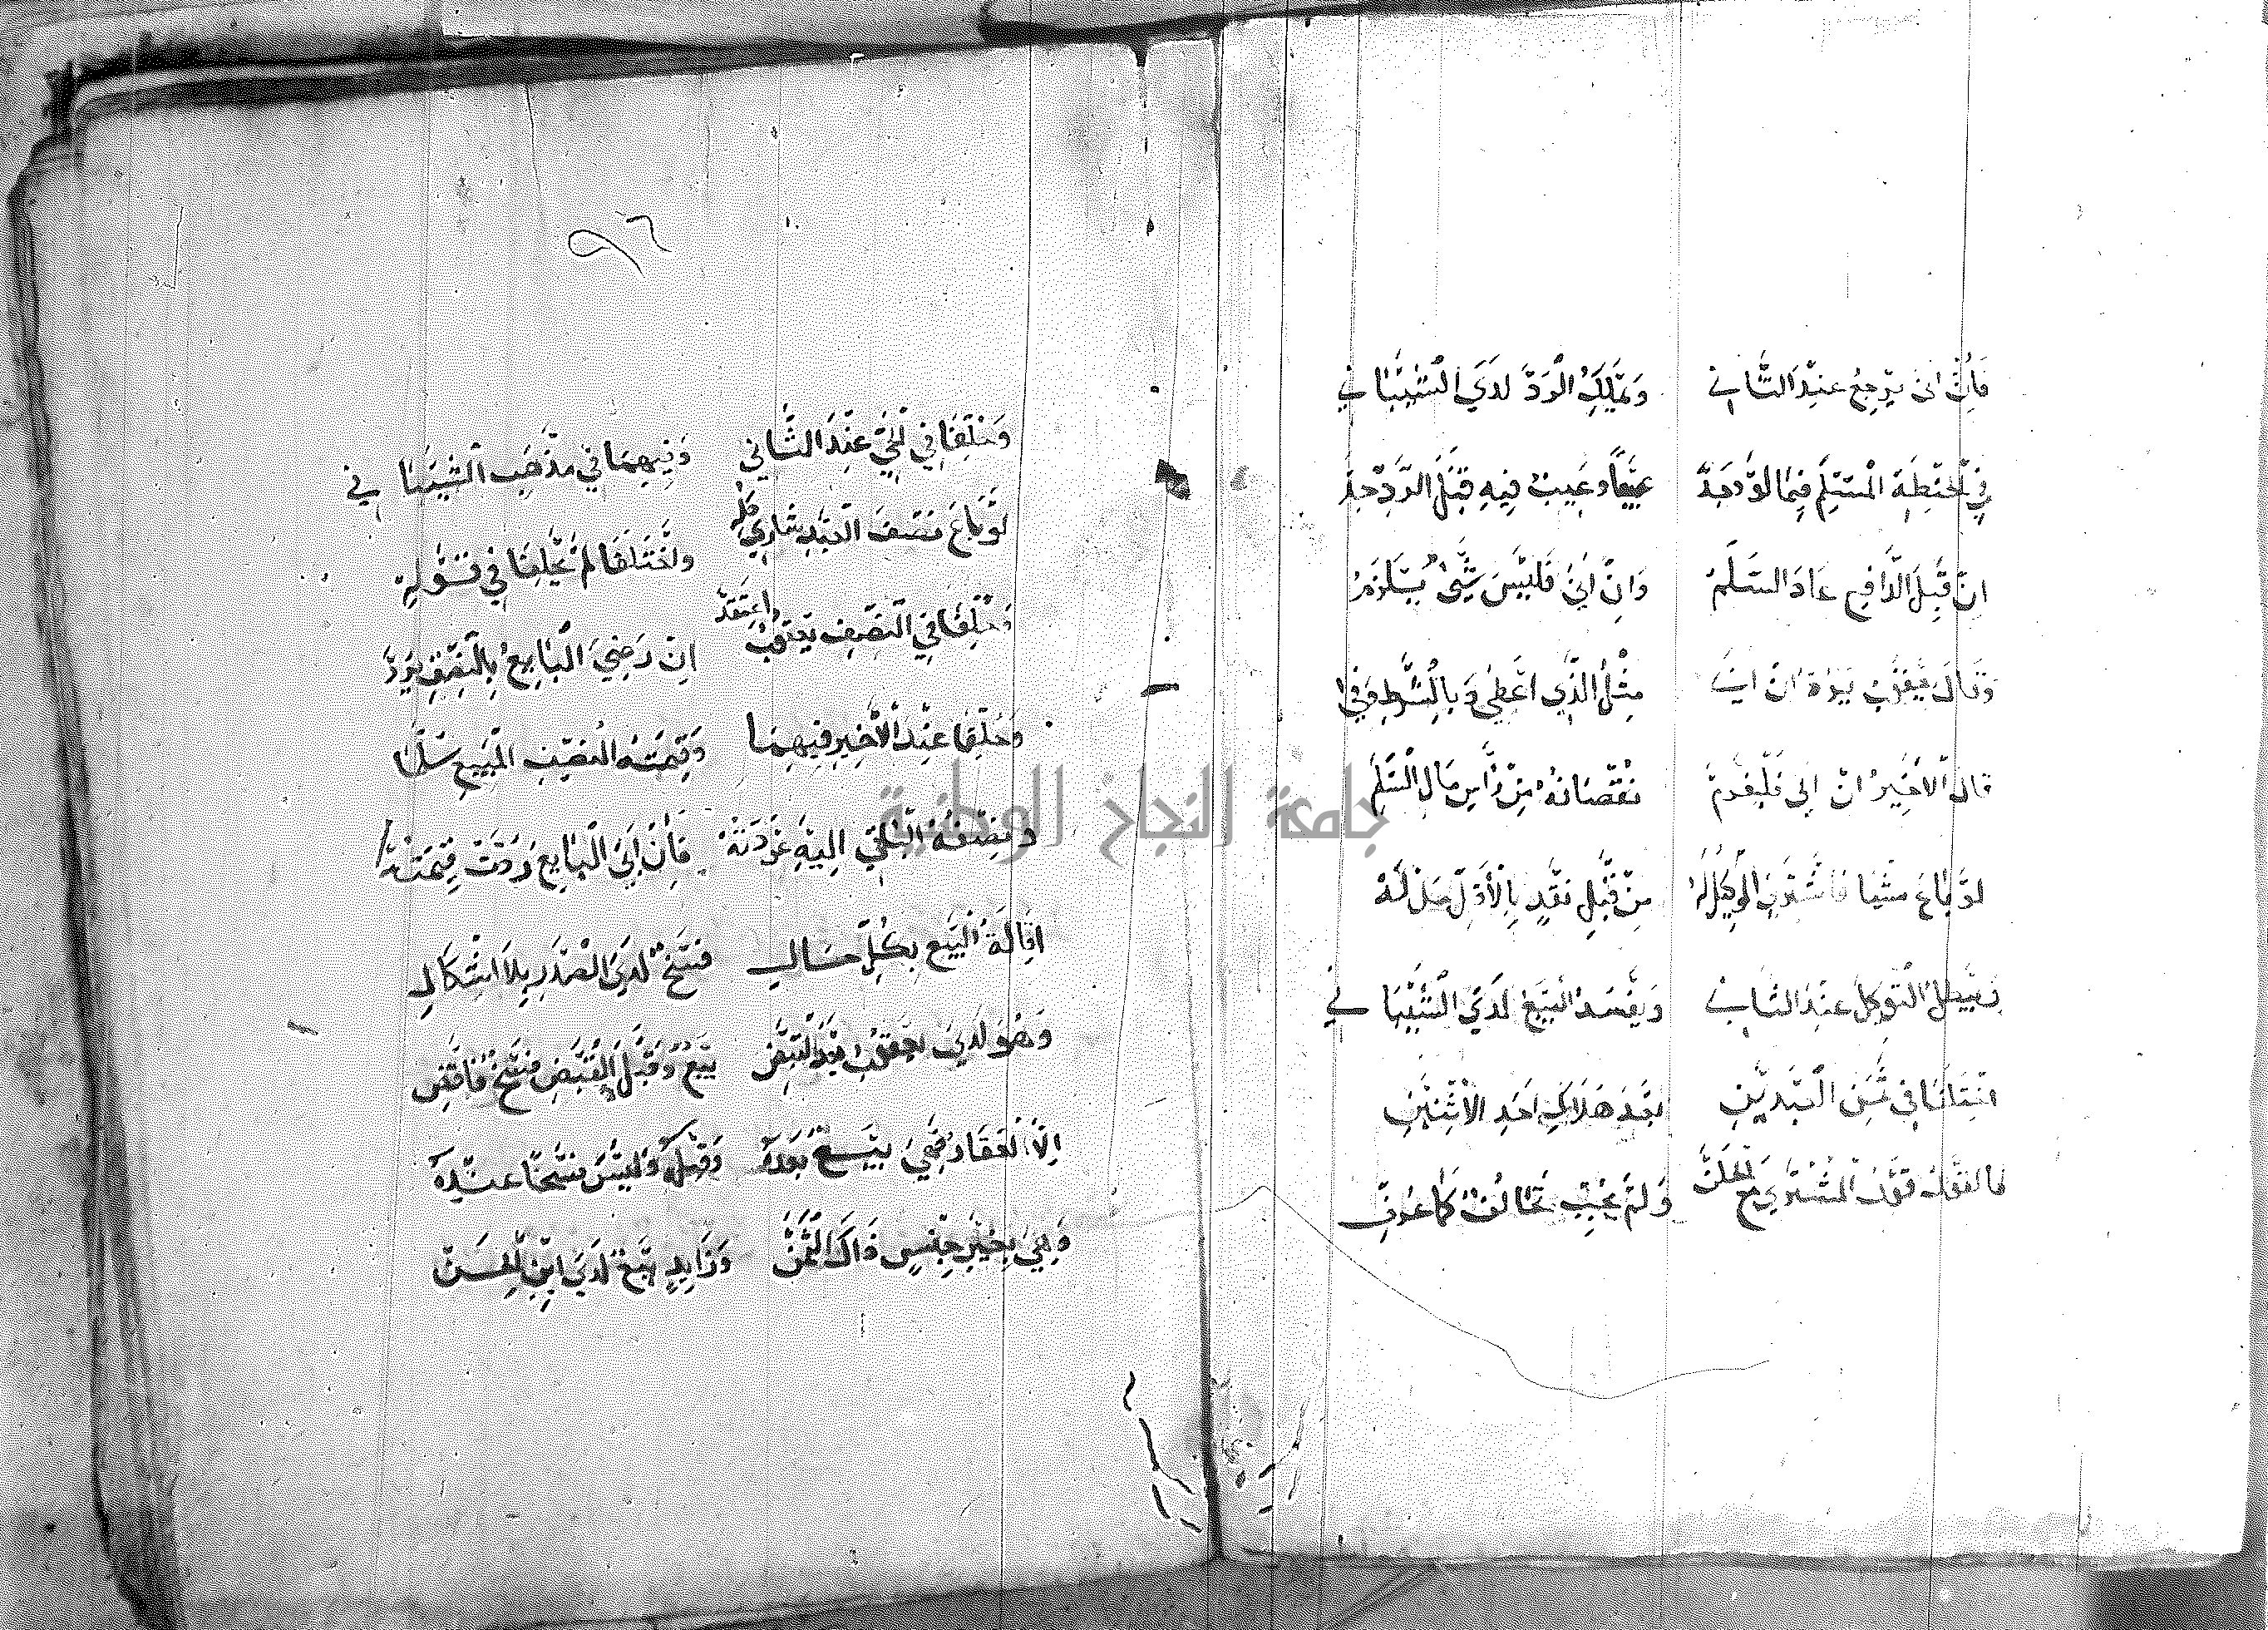 فان ابى يرجع عند الثاني وتملك الرد لدى الشيباني
في حنطة المسلم فيها لو وجد عيبا وعيب فيه قبل الرد جد
ان قبل الدافع عاد السلم وان ابى فليس شيء يلزم
وقال يعقوب يرد ان ابى مثل الذي اعطي وبالشرط وفى
قال الاخير ان ابى فليغرم نقصانه من راس مال السلم
لو باع شيا فاشترى الوكيل له من قبل نقد بالاقل حل له
ويبطل التوكيل عند الثاني ويفسد البيع لدى الشيباني
اختلفا في ثمن العبدين بعد هلاك احد الاثنين
فالقول قول المشتري مع الحلف ولم يجب تحالف كما عرف
٩٦
وحلفا في الحي عند الثاني وفيهما في مذهب الشيباني
لو باع نصف العبد شاري كله واختلفا لم يحلفا في قوله
وحلفا في النصف يعقوب واعتقد ان رضي البايع بالتفريق يرد
وحلفا عند الاخير فيهما وقيمة النصف المبيع سلما
ونصفه الباقي اليه عودته فان ابى البايع ردت قيمته
اقالة البيع بكل حال فسخ لدى الصدر بلا اشكال
وهو لدى يعقوب بعد القبض بيع وقبل القبض فسخ فاقض
الا العقار فهي بيع بعده وقبله وليس فسخا عنده
وهي بغير جنس ذاك الثمن وزايد بيع لدى ابن الحسن
جامعة النجاح الوطنية